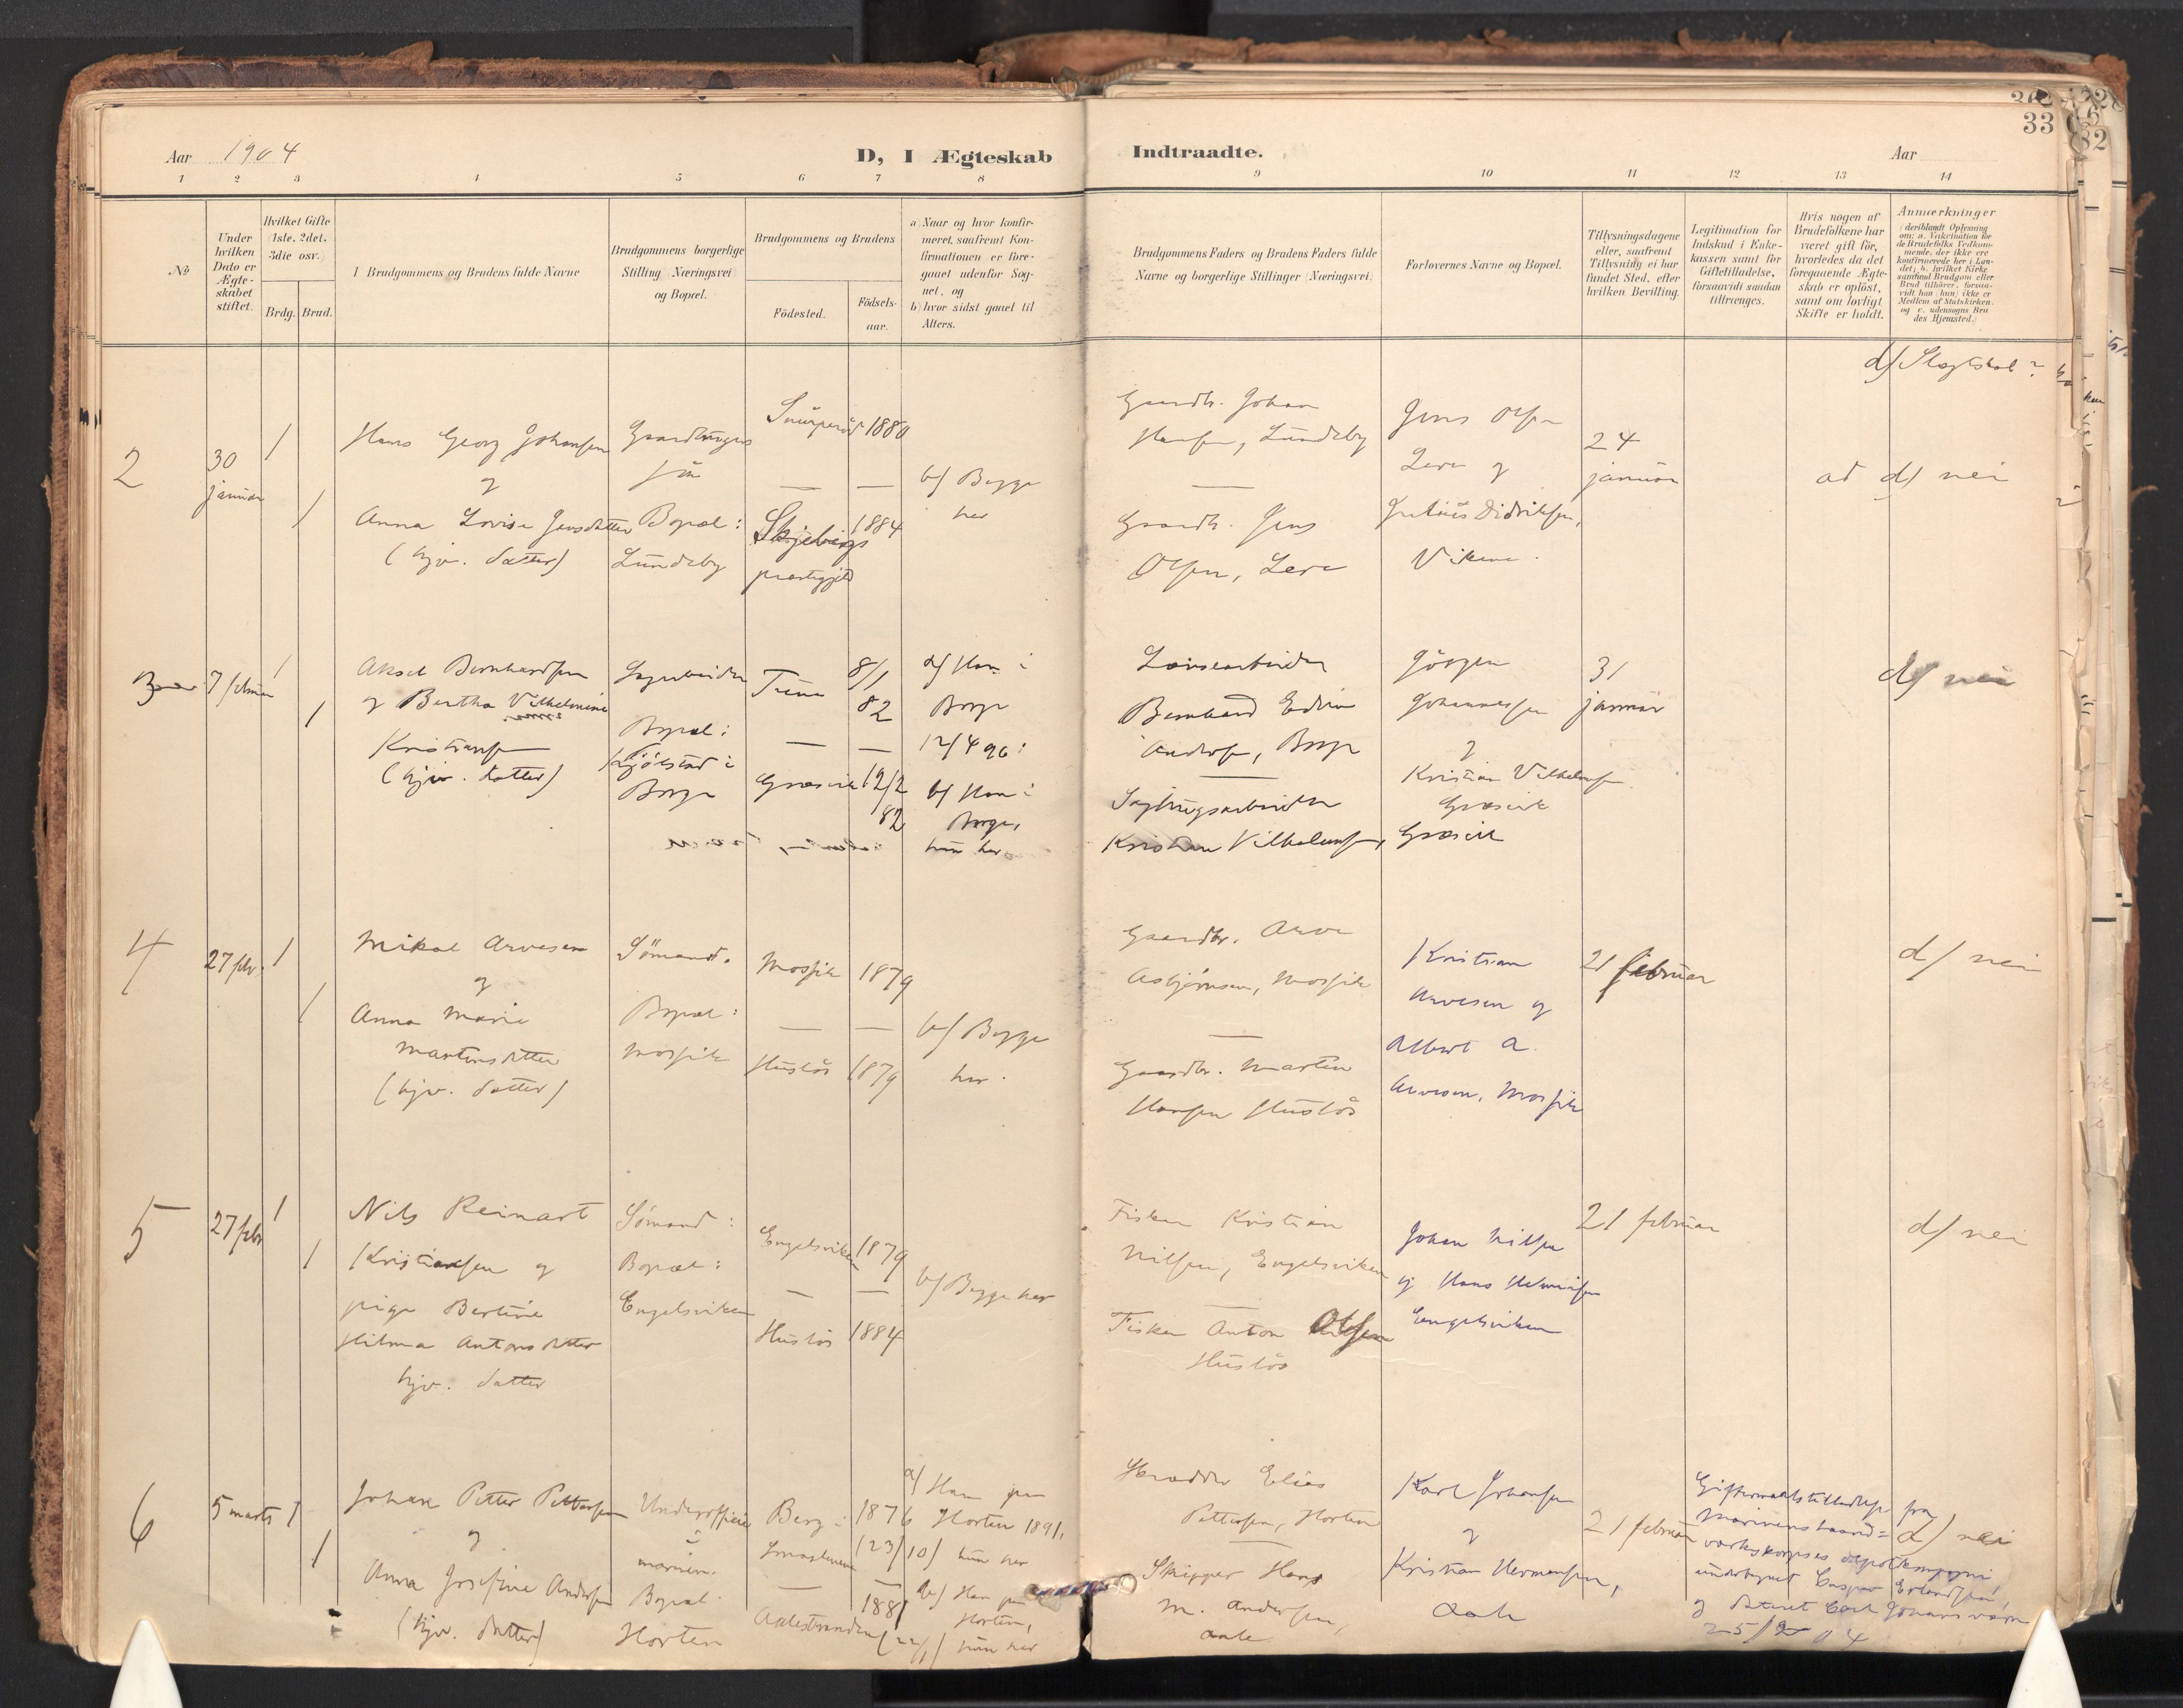 33
Aar 1904
D, I Ægteskab
Indtraadte.
Aar
1 2 3 4 5 6 7 8 9 10 11 12 13 14
No
Under hvilken Dato er Ægteskabet stiftet.
Hvilket Gifte (1ste, 2det, 3die osv.)
Brdg. Brud.
Brudgommens og Brudens fulde Navne
Brudgommens borgerlige Stilling (Næringsvei) og Bopæl.
Brudgommens og Brudens
Födested.
Födselsaar.
a) Naar og hvor konfirmeret, saafremt Konfirmationen er foregaaet udenfor Sognet, og
b) hvor sidst gaaet til Alters.
Brudgommens Faders og Brudens Faders fulde Navne og borgerlige Stillinger (Næringsvei).
Forlovernes Navne og Bopæl.
Tillysningsdagene eller, saafremt Tillysning ei har fundet Sted, efter hvilken Bevilling.
Legitimation for Indskud i Enkekassen samt for Giftetilladelse, forsaavidt saadan tiltrænges.
Hvis nogen af Brudefolkene har været gift før, hvorledes da det foregaaende Ægteskab er oplöst, samt om lovligt Skifte er holdt.
Anmærkninger
d) Slegtskab?
2
30 januar
1
1
Hans Georg Johansen
og
Anna Lovise Jensdatter
(hjv. datter)
Gaardbrugers
søn
Bopæl:
Lundeby
1880
Skjebergs
præstegjeld
1884
b/ Begge
her
Gaardbr. Johan
Hansen, Lundeby
Gaardbr. Jens
Olsen, Lere
Jens Olsen
Lere og
Julius Didriksen,
Vikene.
24
januar
d/ nei
3
7 februar
1
1
Aksel Bernhardsen
og Bertha Vilhelmine
Kristiansen
(hjv. datter)
Bopæl:
Borge
Tune
8/1
82
Græsvik
12/2
82
a/ Han i
Borge
12/4 96:
b/ Han i
Borge,
hun her
Bernhard Edvin
Andersen, Borge
Sagbrugsarbeider
Kristian Vilhelmsen, Græsvik
Jörgen
Johannessen
og
Kristian Vilhelmsen
Græsvik
31
januar
d/ nei
4
27 febr.
1
1
Mikal Arvesen
og
Anna Marie
Martinsdatter
(hjv. datter)
Sömand.
Bopæl:
Mossik
Mossik
1879
Huslös
1879
b/ Begge
her.
Gaardbr. Arve
Asbjørnsen, Mossik
Gaardbr. Martin
Hansen Huslös
Kristian
Arvesen og
Albert A.
Arvesen, Mossik
21 februar
d/ nei
5
27 febr
1
1
Nils Reinart
Kristiansen og
pige Bertine
Hilma Antonsdatter
hjv. datter
Sömand:
Bopæl:
Engelsviken
Engelsviken
1879
Huslös
1884
b/ Begge her
Fisker Kristian
Nilsen, Engelsviken
Fisker Anton Olsen
Huslös
Johan Nilsen
og Hans Helmersen
Engelsviken
21 februar
d/ nei
6
5 marts
1
1
Johan Petter Pettersen
og
Anna Josefine Andersen
(hjv. datter)
Underofficer
i
marinen.
Bopæl
Horten
Berg i
1876
(23/10)
Aalestranden
1881
(22/1)
a/ Han paa
Horten 1891,
hun her
b/ Han paa
Horten,
hun her
Skrædder Elias
Pettersen, Horten
Skipper Hans
M. Andersen,
Aale
Karl Johansen
og
Kristian Hermansen,
Aale
21 februar
Giftermaalstilladelse fra
Marinens haand-
verkskorpses depotkompagni,
og dateret Carl Johansværn
25/2 04
d/ nei